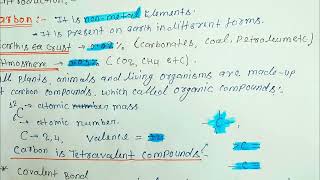 Carbon :- It is non-metal Elements.
• It is present on earth in different forms.
Earth's crust → 0.02% (Carbonates, Coal, Petroleum etc)
Atmosphere → 0.03% (CO2, CH4 etc).
All plants, animals and living organisms are made-up
of carbon compounds. which called organic compounds.
12C → atomic number mass.
6 → atomic number. C
C → 2,4, Valence = C
Carbon is Tetravalent Compounds. C
* Covalent Bond